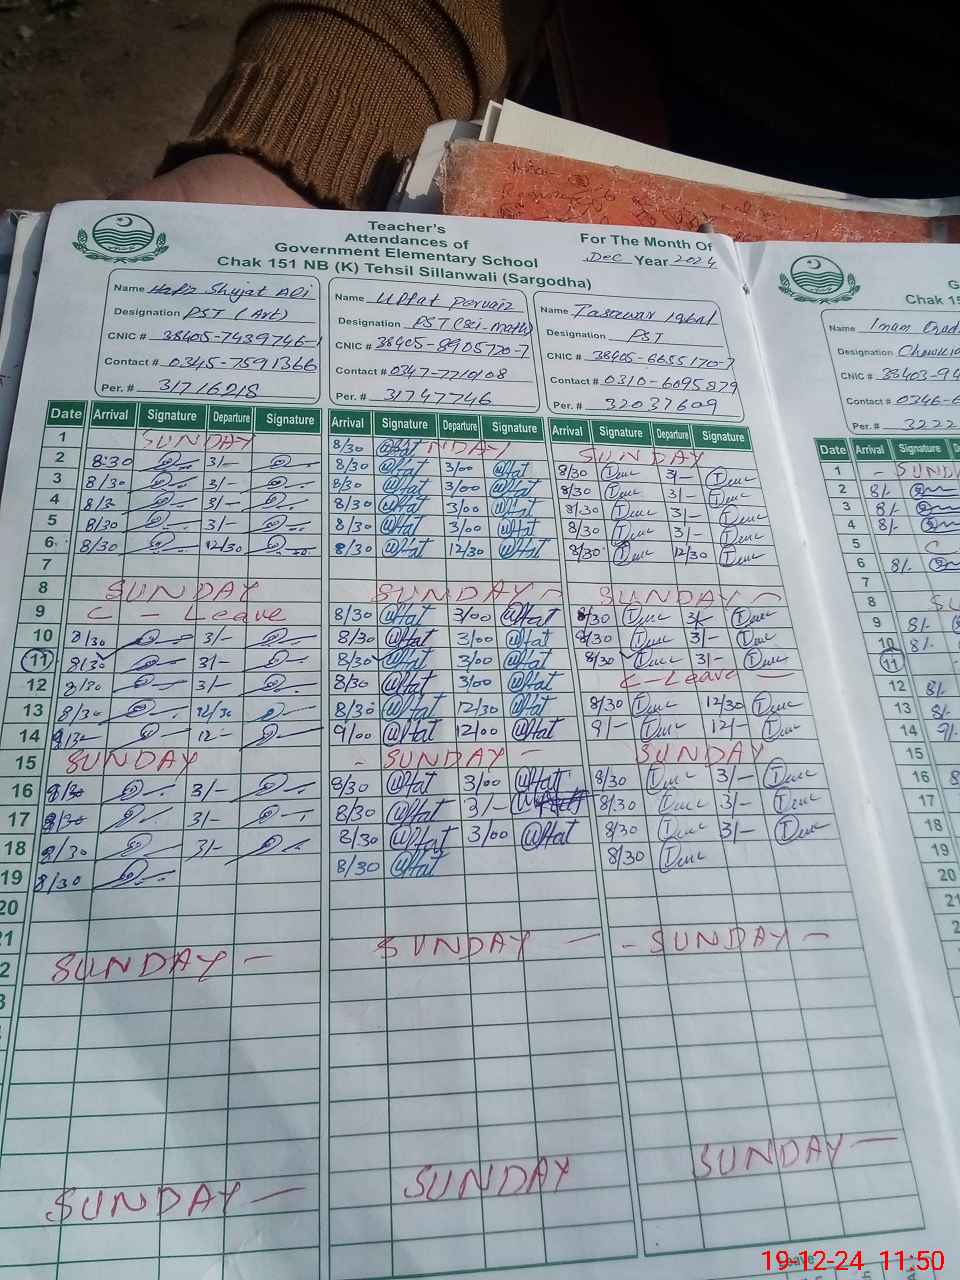 Teacher's
Attendances of
Government Elementary School
Chak 151 NB (K) Tehsil Sillanwali (Sargodha)
For The Month Of
Dec Year 2024
Name Hafiz Shujat Ali
Designation PST (Art)
CNIC # 38405-7439746-1
Contact # 0345-7591366
Per. # 31716218
Name Ulfat Parvaiz
Designation PST (Sci-math)
CNIC # 38405-8905720-7
Contact # 0347-7710108
Per. # 31747746
Name Tasawar Iqbal
Designation PST
CNIC # 38405-6655170-7
Contact # 0310-6095879
Per. # 32037609
Chak 15
Name Imam
Designation
CNIC # 38403-94
Contact # 0346-6
Per. # 3222
Date Arrival Signature Departure Signature Arrival Signature Departure Signature Arrival Signature Departure Signature
Date Arrival Signature
1 SUNDAY 8/30 NDAY SUNDAY
2 8:30 3/- 8/30 Ulfat 3/00 Ulfat 8/30 3/-
3 8/30 3/- 8/30 Ulfat 3/00 Ulfat 8/30 3/-
4 8/3 3/- 8/30 Ulfat 3/00 Ulfat 8/30 3/-
5 8/30 3/- 8/30 Ulfat 3/00 Ulfat 8/30 3/-
6 8/30 12/30 8/30 Ulfat 12/30 Ulfat 8/30 12/30
7
8 SUNDAY SUNDAY - SUNDAY -
9 C - Leave 8/30 Ulfat 3/00 Ulfat 8/30 3/-
10 8/30 3/- 8/30 Ulfat 3/00 Ulfat 8/30 3/-
11 8/30 3/- 8/30 Ulfat 3/00 Ulfat 8/30 3/-
12 8/30 3/- 8/30 Ulfat 3/00 Ulfat C-Leave -
13 8/30 12/30 8/30 Ulfat 12/30 Ulfat 8/30 12/30
14 12- 9/00 Ulfat 12/00 Ulfat 9/- 12/-
15 SUNDAY - SUNDAY - SUNDAY
16 8/30 3/- 8/30 Ulfat 3/00 Ulfat 8/30 3/-
17 8/30 3/- 8/30 Ulfat 3/- 8/30 3/-
18 8/30 3/- 8/30 Ulfat 3/00 Ulfat 8/30 3/-
19 8/30 8/30 Ulfat 8/30
20
21
SUNDAY - SUNDAY - - SUNDAY -
SUNDAY - SUNDAY SUNDAY -
1
2 8/-
3 8/-
4 8/-
5
6 8/-
7
8
9 8/-
10 8/-
11
12 8/-
13 8/-
14 9/-
15
16
17
18
19
20
21
Leave
19-12-24 11:50